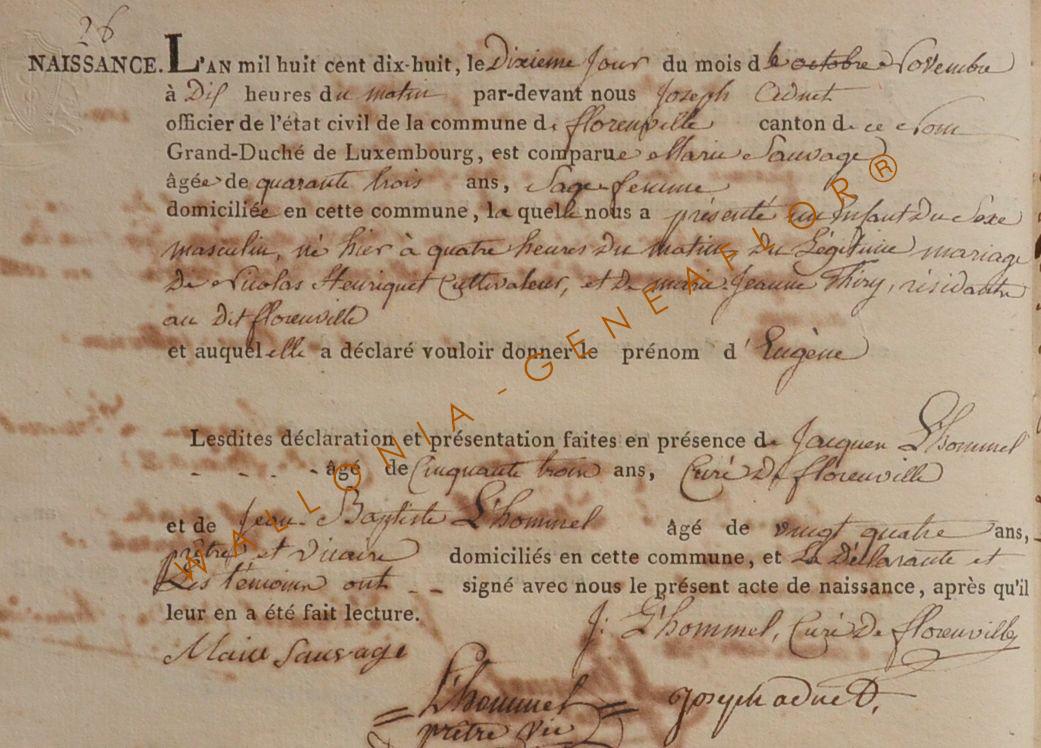 26
NAISSANCE. L'AN mil huit cent dix-huit, le Dixieme Jour du mois de octobre Novembre
à Dix heures du matin par-devant nous Joseph Adnet
officier de l'état civil de la commune de florenville canton de ce Nom
Grand-Duché de Luxembourg, est comparue Marie Sauvage
âgée de quarante trois ans, Sage femme
domiciliée en cette commune, la quelle nous a présenté un Enfant Du Sexe
masculin, né hier à quatre heures Du matin Du Légitime mariage
De Nicolas Henriquet Cultivateur, et De marie Jeanne Thiry, résidants
au dit florenville
et auquel elle a déclaré vouloir donner le prénom d' Eugène
Lesdites déclaration et présentation faites en présence de Jacques L'hommel
- - - - âgé de Cinquante trois ans, Curé De florenville
et de Jean Baptiste L'hommel âgé de vingt quatre ans,
prêtre et vicaire domiciliés en cette commune, et La Déclarante et
Les témoins ont - - signé avec nous le présent acte de naissance, après qu'il
leur en a été fait lecture.
J: L'hommel, Curé De florenville
Marie Sauvage
L'hommel
prêtre vic
joseph adnet.
WALLONIA - GENEAFLOR®